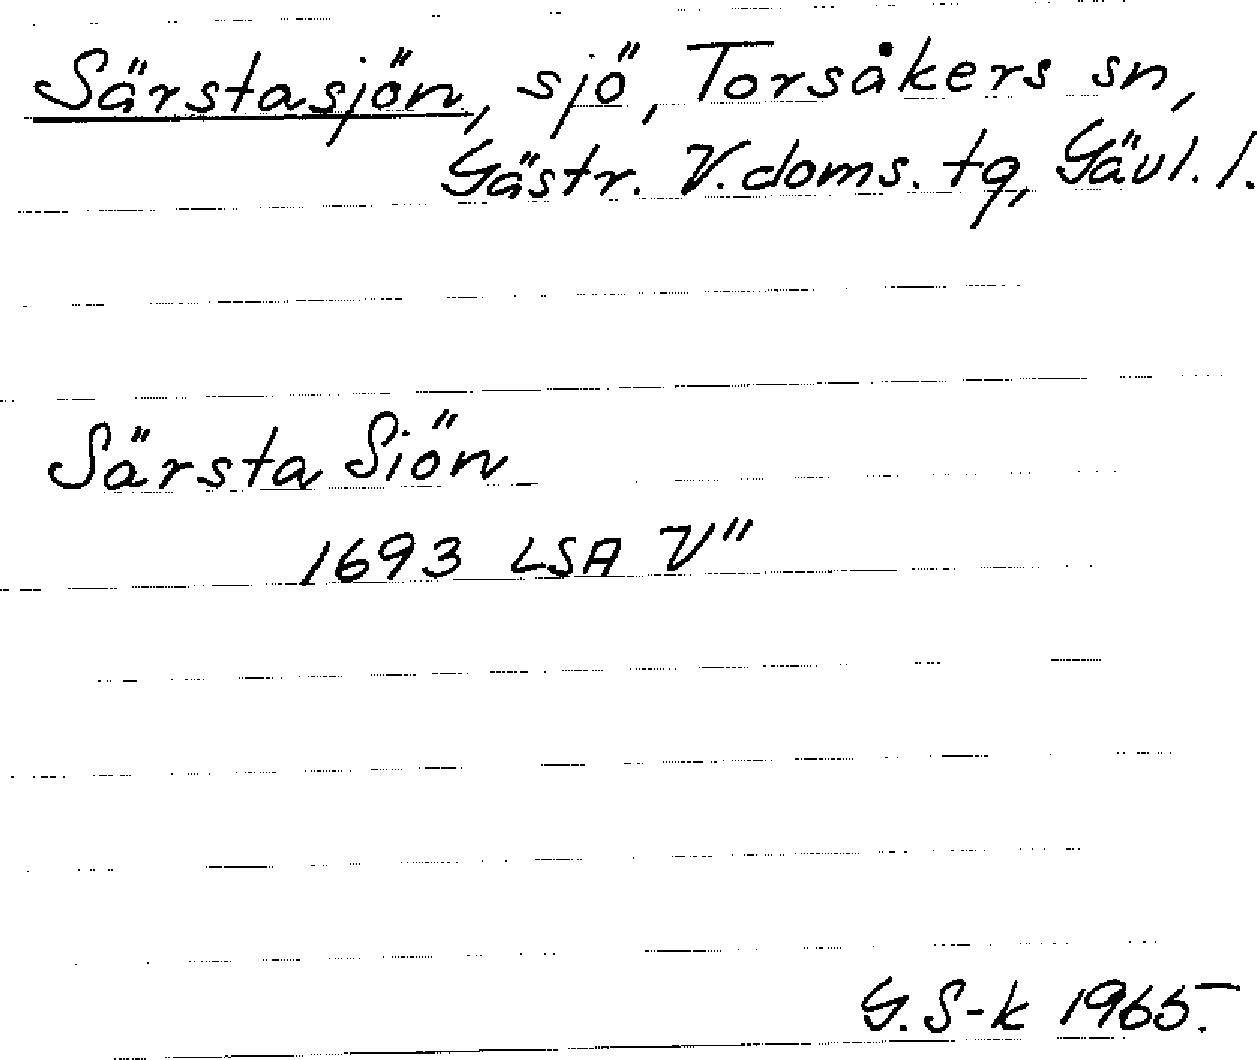 Särstasjön, sjö, Torsåkers sn,
Gästr. V. doms. tg, Gävl. l.
Särsta Siön
1693 LSA V"
G. S-k 1965.